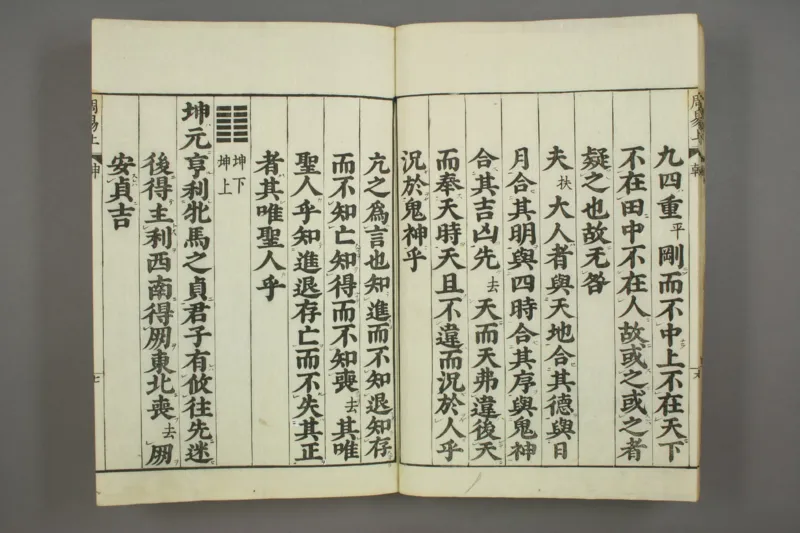 周易上 乾
九四重平剛而不中上不在天下
不在田中不在人故或之或之者
疑之也故无咎
夫扶大人者與天地合其德與日
月合其明與四時合其序與鬼神
合其吉凶先去天而天弗違後天
而奉天時天且不違而況於人乎
況於鬼神乎
亢之爲言也知進而不知退知存
而不知亡知得而不知喪去其唯
聖人乎知進退存亡而不失其正
者其唯聖人乎
䷁ 坤下
坤上
坤元亨利牝馬之貞君子有攸往先迷
後得主利西南得朋東北喪去朋
安貞吉
周易上 坤 七